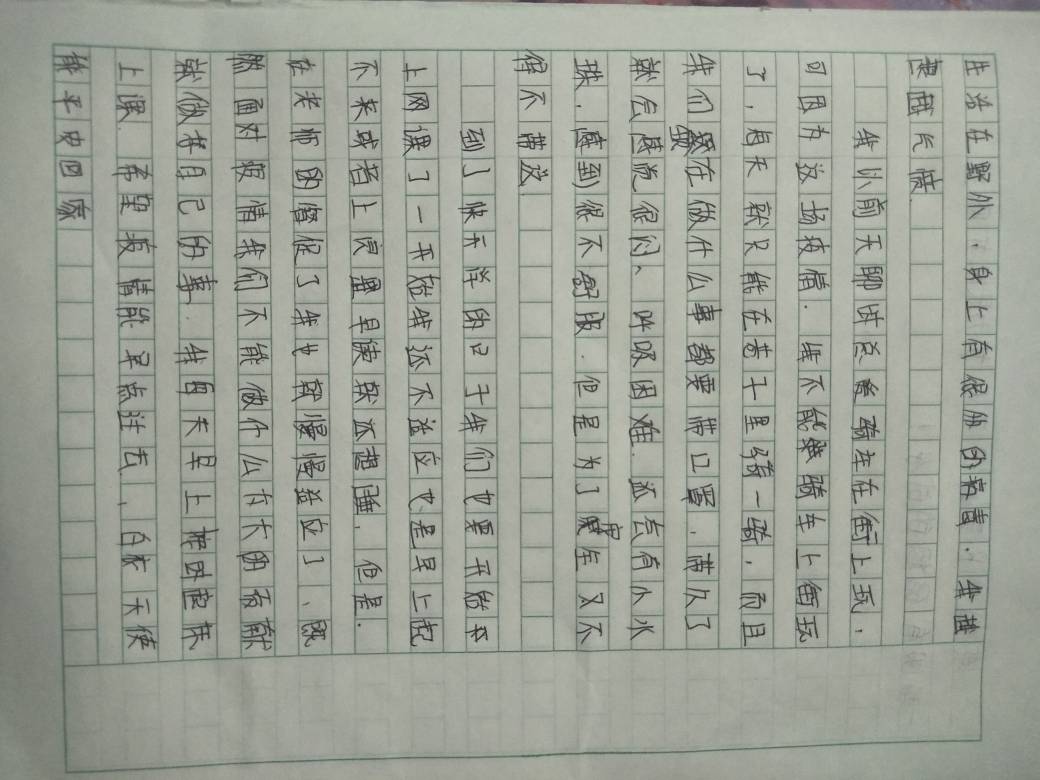 生活在野外,身上有很胁的病毒.我越
想越气愤
我以前天聊时总爱骑车在街上玩,
可因为这场疫情.再不能骑车上街玩
了,每天就只能在巷子里骑一骑,而且
我们现在做什么事都要带口罩.带久了
就会感觉很闷、呼吸困难.还会有小水
珠.感到很不舒服.但是为了安全又不
得不带没
到了快开学的日子我们也要开始
上网课了一开始我还不适应也是早上起
不来或者上课是早读就还想睡.但是.
在老师的督促了我也就慢慢适应了、既
然面对疫情我们不能做什么大的贡献
就做好自己的事.我每天早上
上课.希望疫情能早点过去,白衣天使
能平安回家